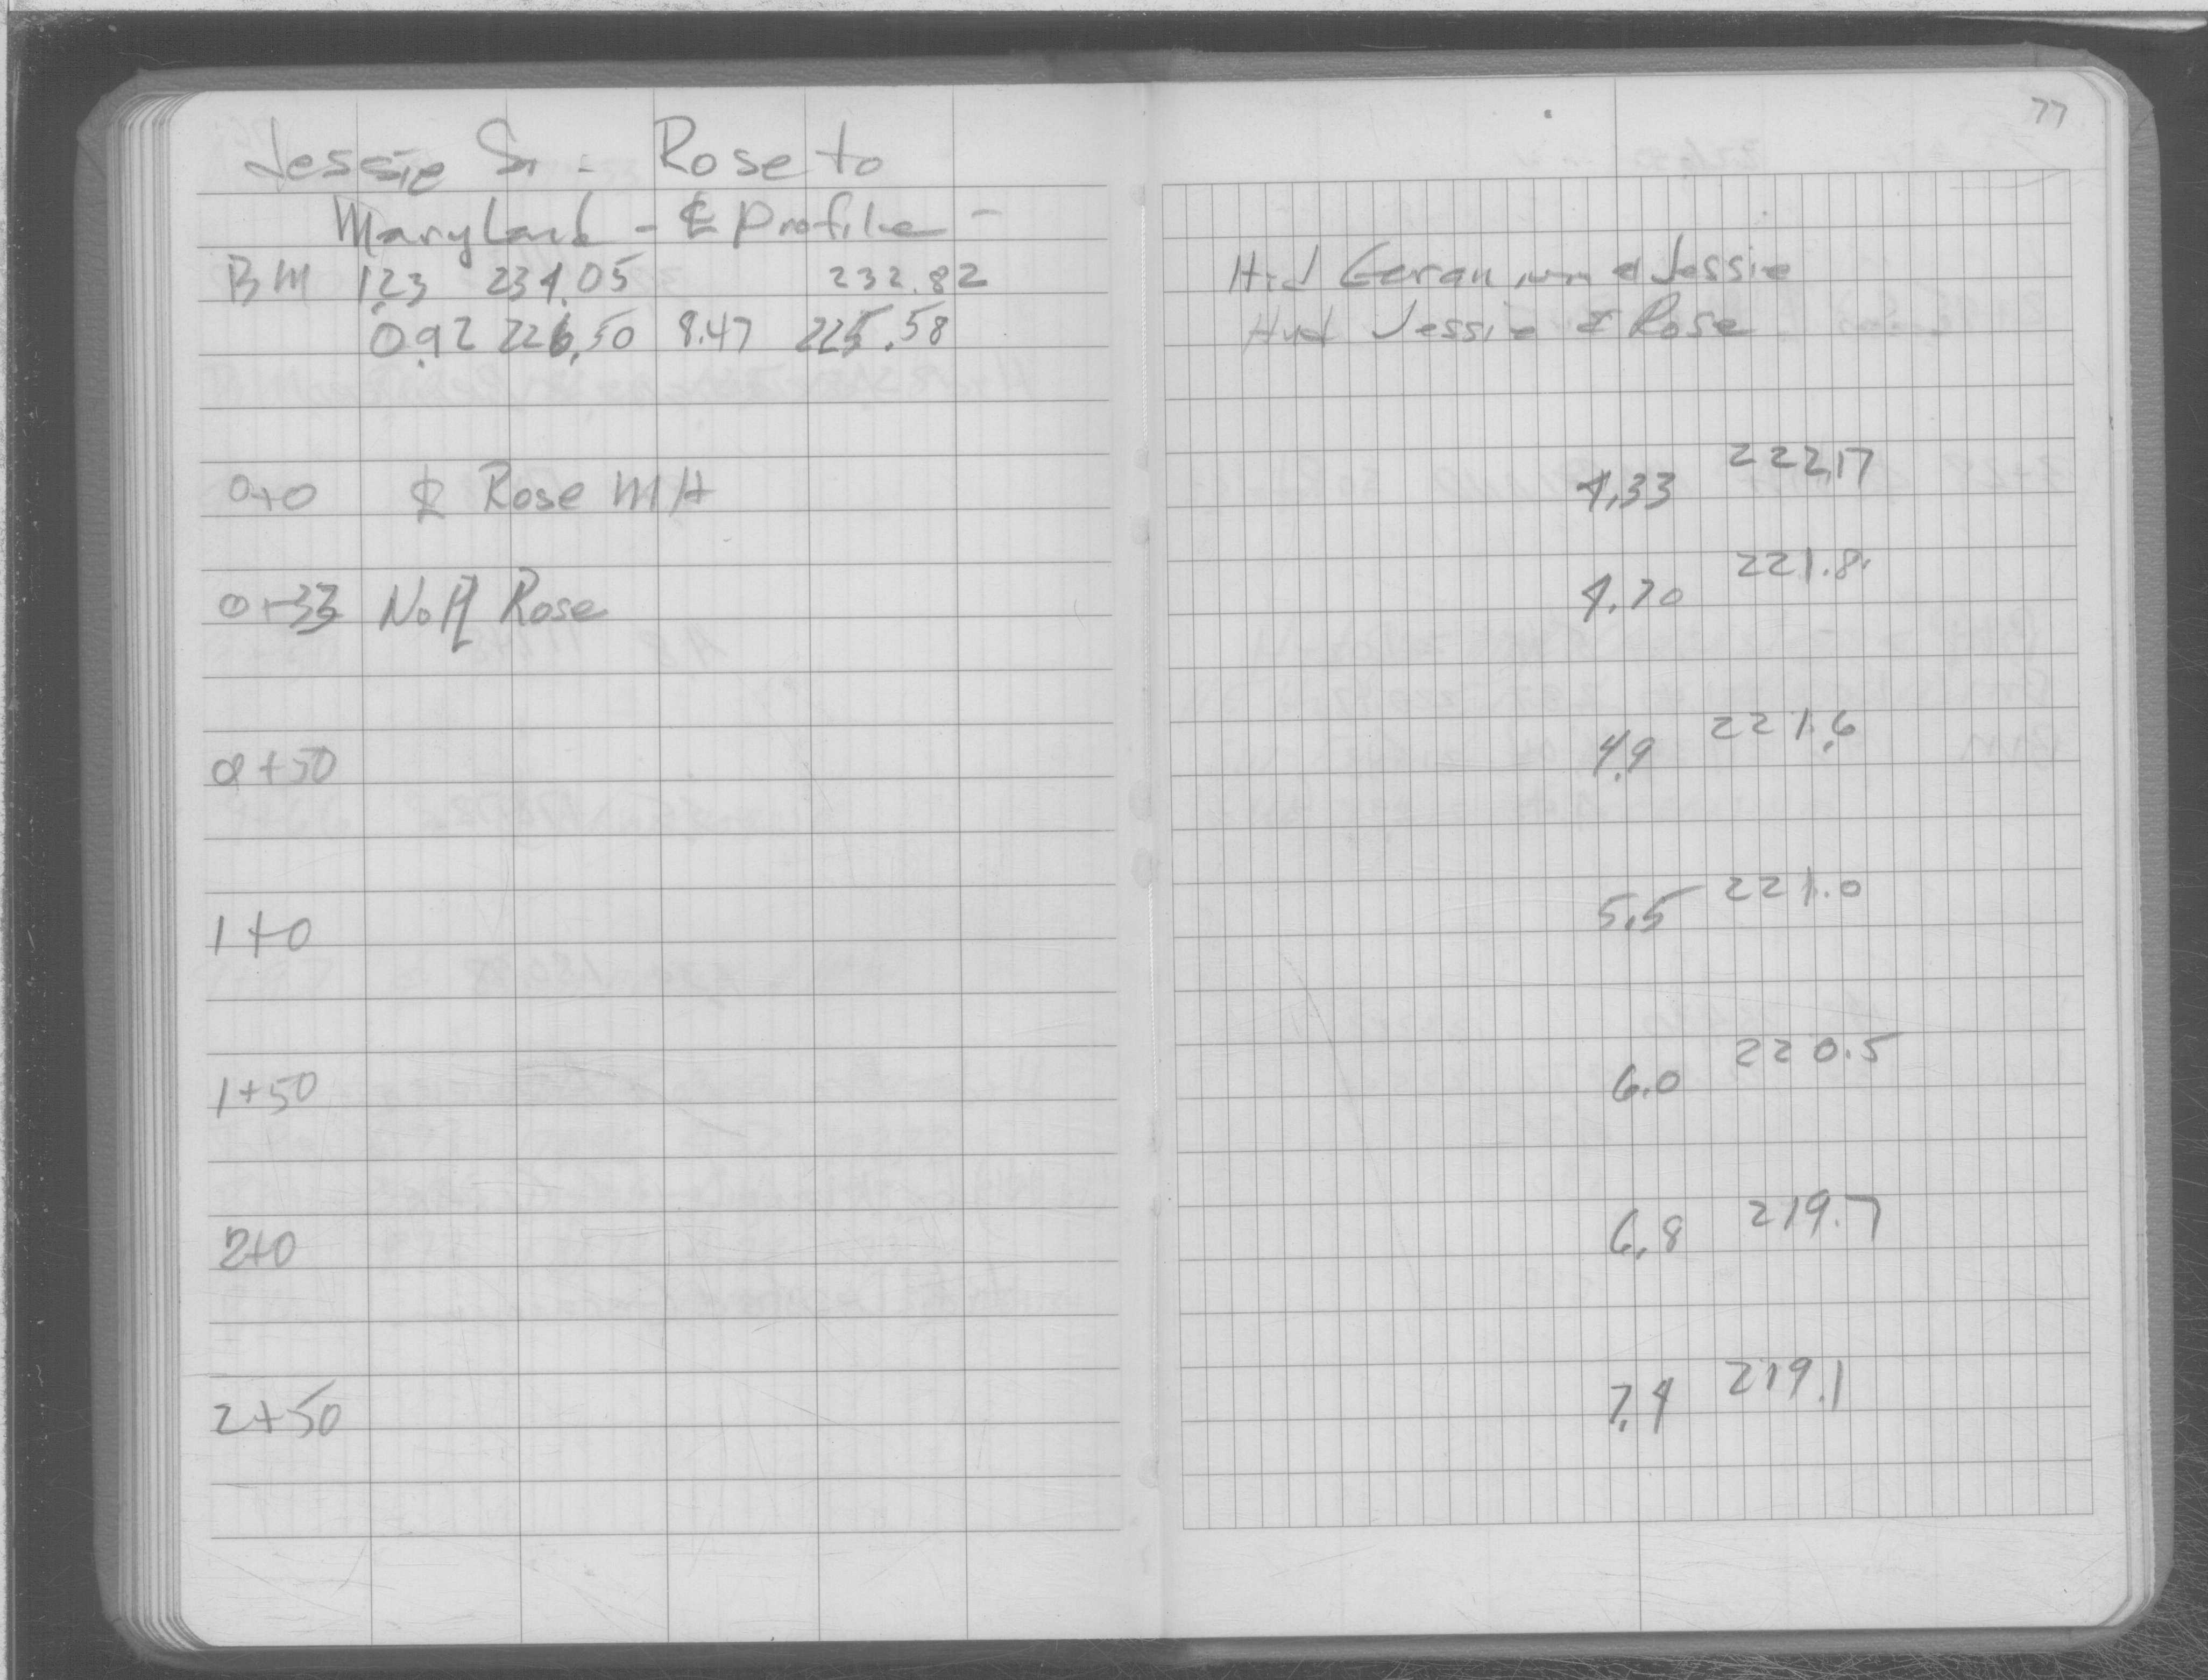 77
Jessie St - Rose to
Maryland - ℄ Profile -
BM 1.23 234.05 232.82 Hyd Geranium & Jessie
0.92 226.50 8.47 225.58 Hyd Jessie & Rose
0+0 ℄ Rose MH 4.33 222.17
0+33 No ⅊ Rose 4.70 221.8
0+50 4.9 221.6
1+0 5.5 221.0
1+50 6.0 220.5
2+0 6.8 219.7
2+50 7.4 219.1